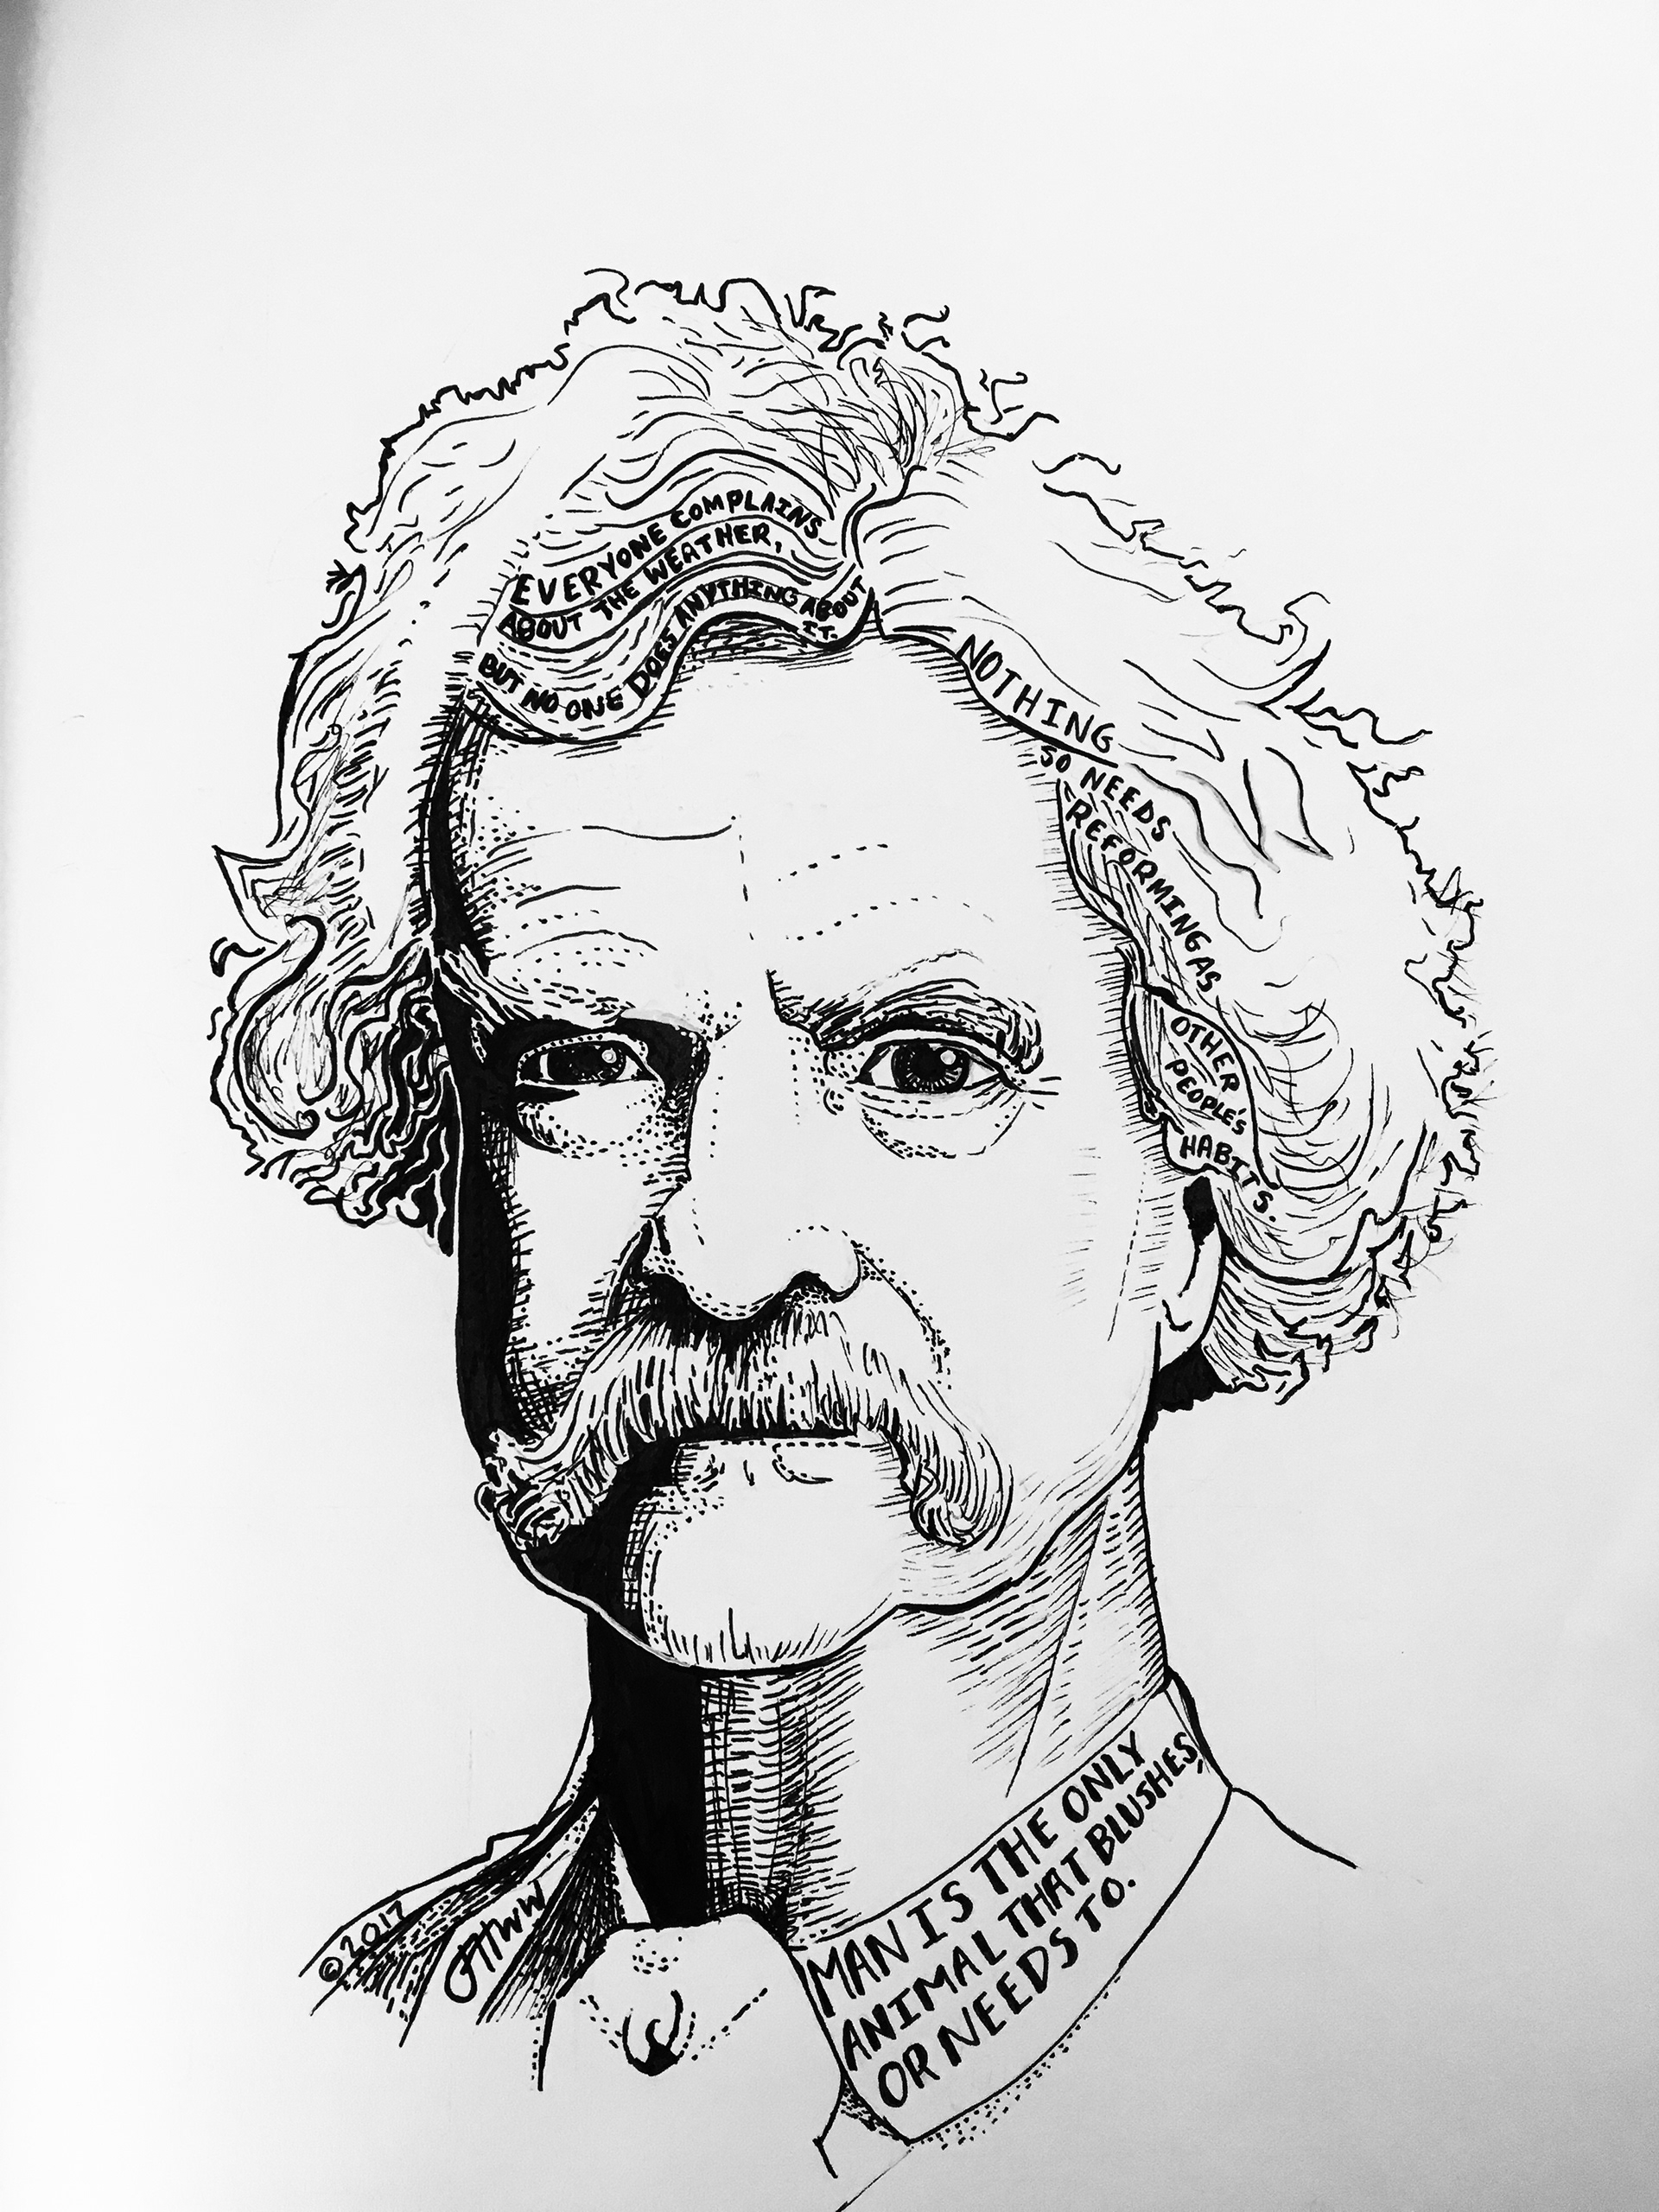 EVERYONE COMPLAINS
ABOUT THE WEATHER,
BUT NO ONE DOES ANYTHING ABOUT
IT.
NOTHING
SO NEEDS
REFORMING AS
OTHER
PEOPLE'S
HABITS.
MAN IS THE ONLY
ANIMAL THAT BLUSHES,
OR NEEDS TO.
©2017